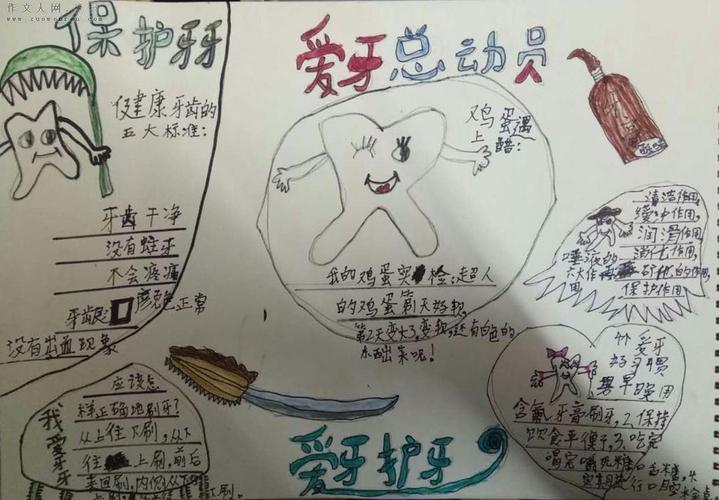 作文人网
保护牙牙
健康牙齿的
五大标准:
牙齿干净
没有蛀牙
不会疼痛
牙龈颜色正常
没有出血现象
爱牙总动员
鸡蛋遇
上醋:
我的鸡蛋实检:超人
的鸡蛋第1天好软,
第2天变大了,变软,还有白色的
东西出来呢!
清洁作用
缓冲作用,
润滑作用
消化作用
唾液的
六大作用
保护作用
爱牙
好习惯
早晚用
含氟牙膏刷牙,2.保持
饮食平衡,3.吃完
我爱牙牙
应该怎
样正确地刷牙?
从上往下刷,从下
往上刷,前后
来回刷,内侧从下
爱牙护牙